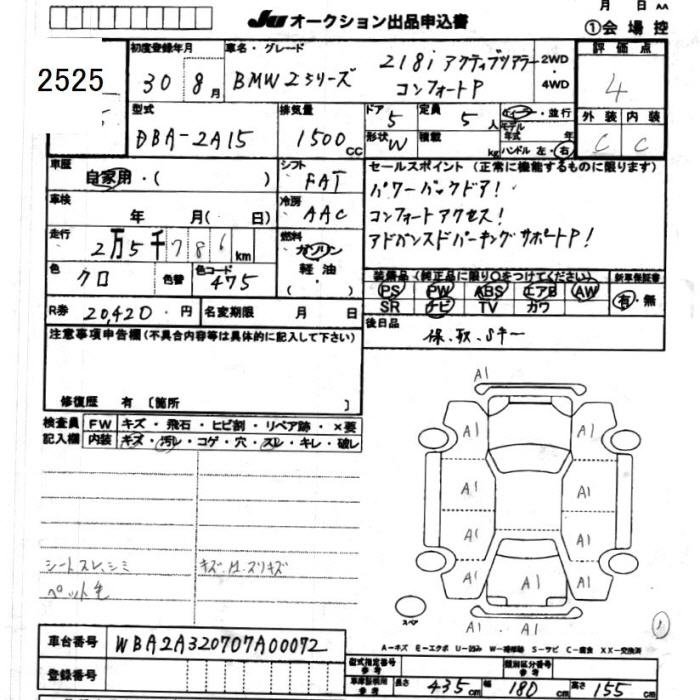 月 日
JU オークション出品申込書 ①会場控
2525
初度登録年月 車名・グレード 評価点
30 8月 BMW 2シリーズ 218i アクティブツアラー コンフォートP 2WD ・ 4WD 4
型式 排気量 ドア 定員 ディーラー・並行 外装 内装
DBA-2A15 1500cc 5 5人 モデル年式 年 C C
形状 W 積載 kg ハンドル 左・右
車歴 シフト セールスポイント(正常に機能するものに限ります)
自家用・( ) FAT パワーバックドア!
車検 冷房 コンフォートアクセス!
年 月( 日) AAC アドバンスドパーキングサポートP!
走行 燃料
2万5千786km ガソリン 軽油 ( )
装備品(純正品に限り○をつけてください) 新車保証書
色 色替 色コード
クロ 475 PS PW ABS エアB AW 有・無
SR ナビ TV カワ
R券 20,420円 名変期限 月 日 後日品
注意事項申告欄(不具合内容等は具体的に記入して下さい) 保、取、Sキー
修復歴 有〔箇所 〕
検査員記入欄 FW キズ・飛石・ヒビ割・リペア跡・×要
内装 キズ・汚レ・コゲ・穴・スレ・キレ・破レ
A1
A1 A1
A1 A1
A1 A1
A1 A1 A1
A1 A1
スペア
シートスレ、シミ
ペット毛
1
A-キズ E-エクボ U-凹み W-補修跡 S-サビ C-腐食 XX-交換済
車台番号 WBA2A320707A00072
登録番号
型式指定番号 参考 類別区分番号 参考
車庫証明用参考 長さ 435cm 幅 180cm 高さ 155cm